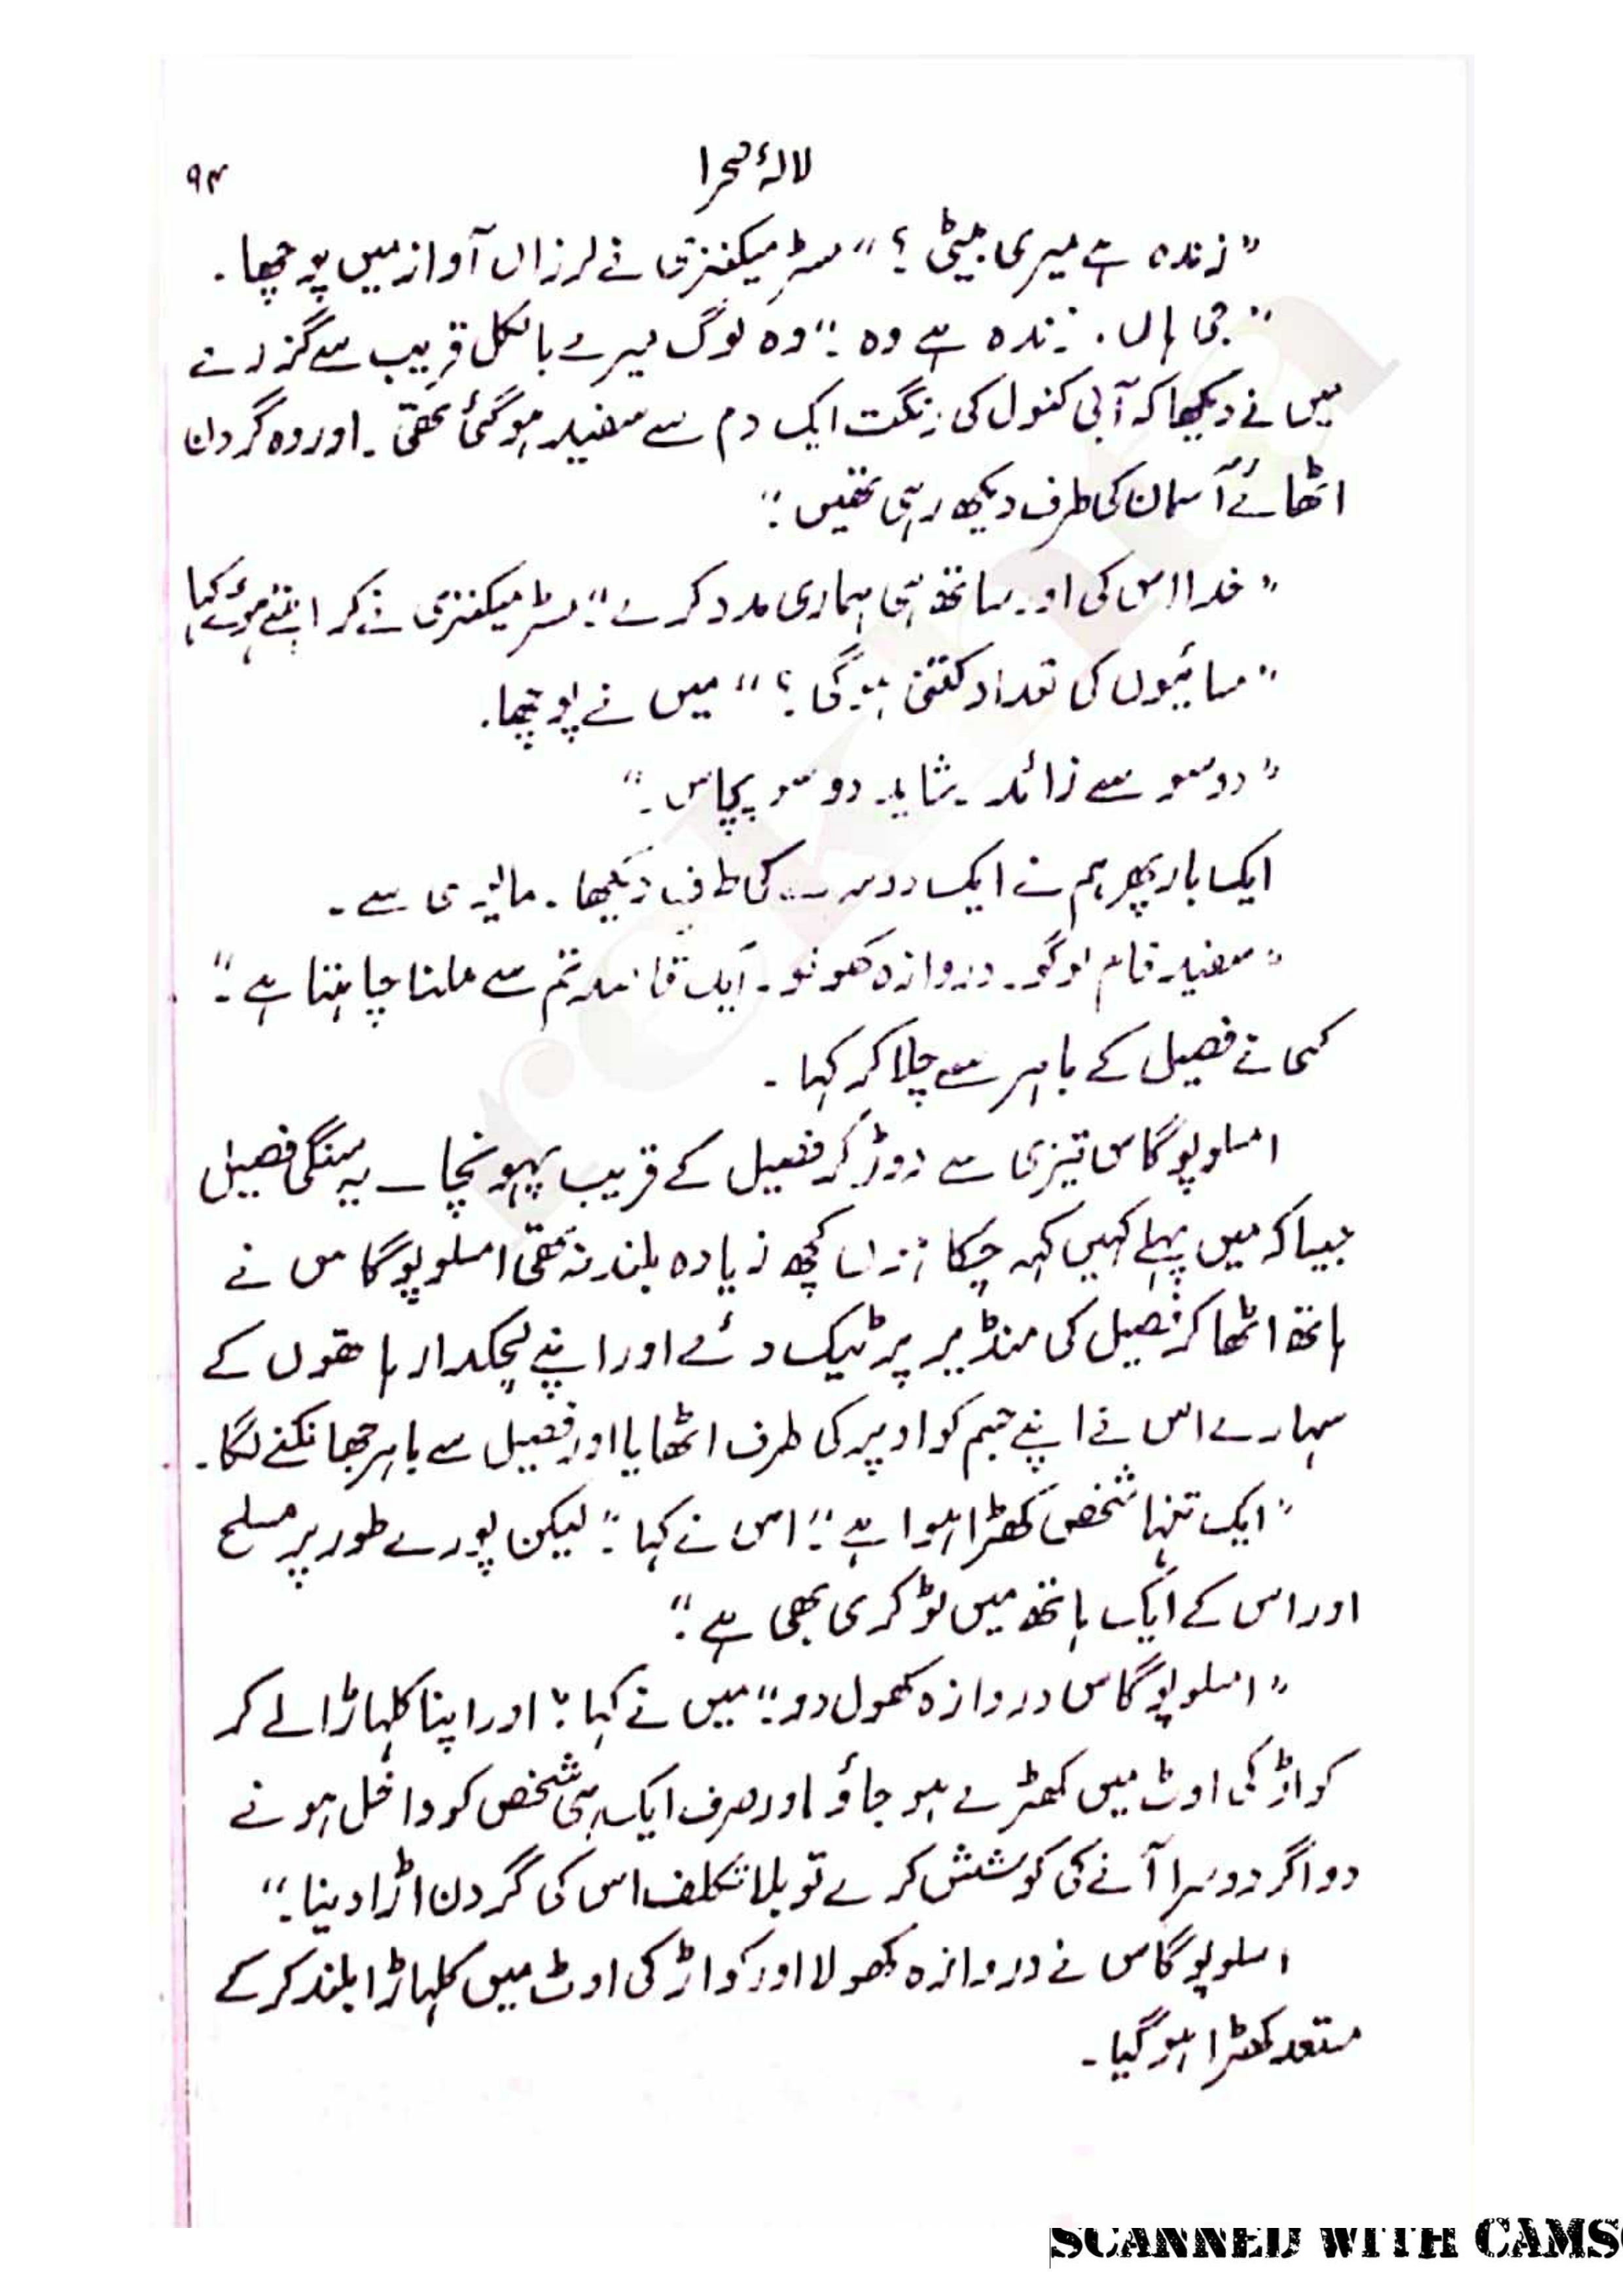 لالۂ صحرا ۹۴
"زندہ ہے میری بیٹی؟" مسٹر میکنزی نے لرزاں آواز میں پوچھا۔
"جی ہاں۔ زندہ ہے وہ۔" وہ لوگ میرے بالکل قریب سے گزرے
میں نے دیکھا کہ آبی کنول کی رنگت ایک دم سے سفید ہو گئی تھی۔ اور وہ گردن
اٹھائے آسمان کی طرف دیکھ رہی تھیں۔"
"خدا اس کی اور ساتھ ہی ہماری مدد کرے۔" مسٹر میکنزی نے کراہتے ہوئے کہا
"مسائیوں کی تعداد کتنی ہوگی؟" میں نے پوچھا۔
"دو سو سے زائد۔ شاید دو سو پچاس۔"
ایک بار پھر ہم نے ایک دوسرے کی طرف دیکھا۔ مایوسی سے۔
"سفید فام لوگو۔ دروازہ کھولو۔ ایک قاصد تم سے ملنا چاہتا ہے۔"
کسی نے فصیل کے باہر سے چلا کر کہا۔
امسلوپوگاس تیزی سے دوڑ کر فصیل کے قریب پہونچا ــ یہ سنگی فصیل
جیسا کہ میں پہلے کہیں کہہ چکا ہوں کچھ زیادہ بلند نہ تھی امسلوپوگاس نے
ہاتھ اٹھا کر فصیل کی منڈیر پر ٹیک دئے اور اپنے لچکدار ہاتھوں کے
سہارے اس نے اپنے جسم کو اوپر کی طرف اٹھایا اور فصیل سے باہر جھانکنے لگا۔
"ایک تنہا شخص کھڑا ہوا ہے۔" اس نے کہا۔" لیکن پورے طور پر مسلح
اور اس کے ایک ہاتھ میں ٹوکری بھی ہے۔"
"امسلوپوگاس دروازہ کھول دو۔" میں نے کہا۔" اور اپنا کلہاڑا لے کر
کواڑ کی اوٹ میں کھڑے ہو جاؤ اور صرف ایک ہی شخص کو داخل ہونے
دو اگر دوسرا آنے کی کوشش کرے تو بلا تکلف اس کی گردن اڑا دینا۔"
امسلوپوگاس نے دروازہ کھولا اور کواڑ کی اوٹ میں کلہاڑا بلند کر کے
مستعد کھڑا ہو گیا۔
rekhta
SCANNED WITH CAMS